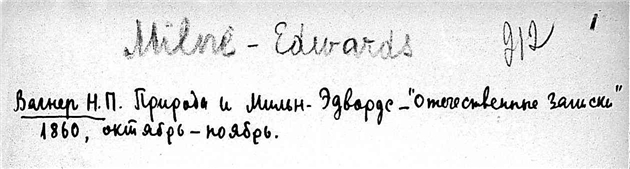 Milne - Edwards 212
Вагнер Н.П. Природа и Мильн-Эдвардс - "Отечественные записки"
1860, октябрь - ноябрь.